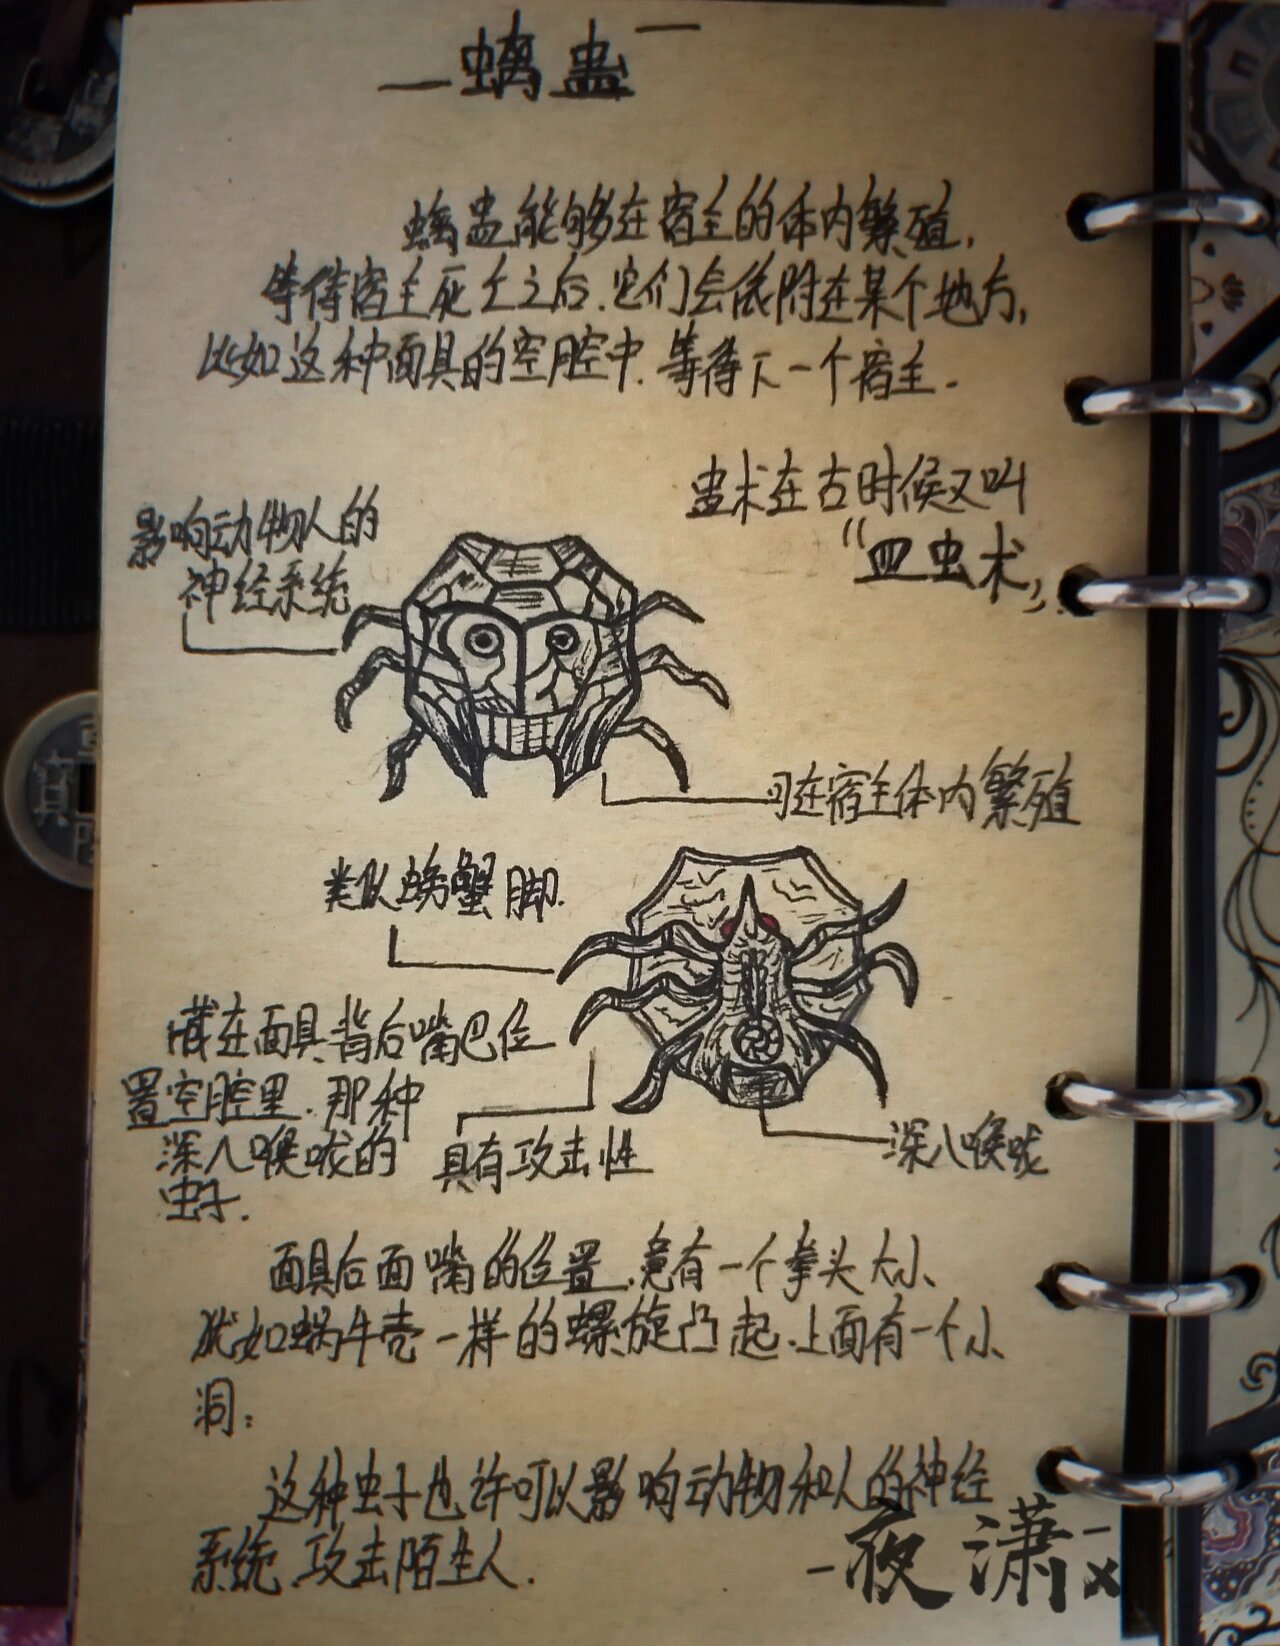 螭蛊
螭蛊能够在宿主的体内繁殖,
等待宿主死亡之后.它们会依附在某个地方,
比如这种面具的空腔中.等待下一个宿主.
蛊术在古时候又叫
“皿虫术”
影响动物人的
神经系统
可在宿主体内繁殖
类似螃蟹脚.
藏在面具背后嘴巴位
置空腔里.那种
深入喉咙的
虫子.
具有攻击性
深入喉咙
面具后面嘴的位置.竟有一个拳头大小、
犹如蜗牛壳一样的螺旋凸起.上面有一个小
洞:
这种虫子也许可以影响动物和人的神经
系统.攻击陌生人.
夜潇